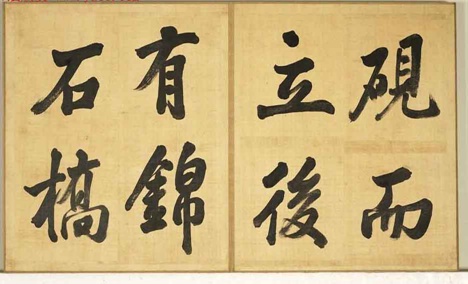 硯而
立後
有錦
石橋